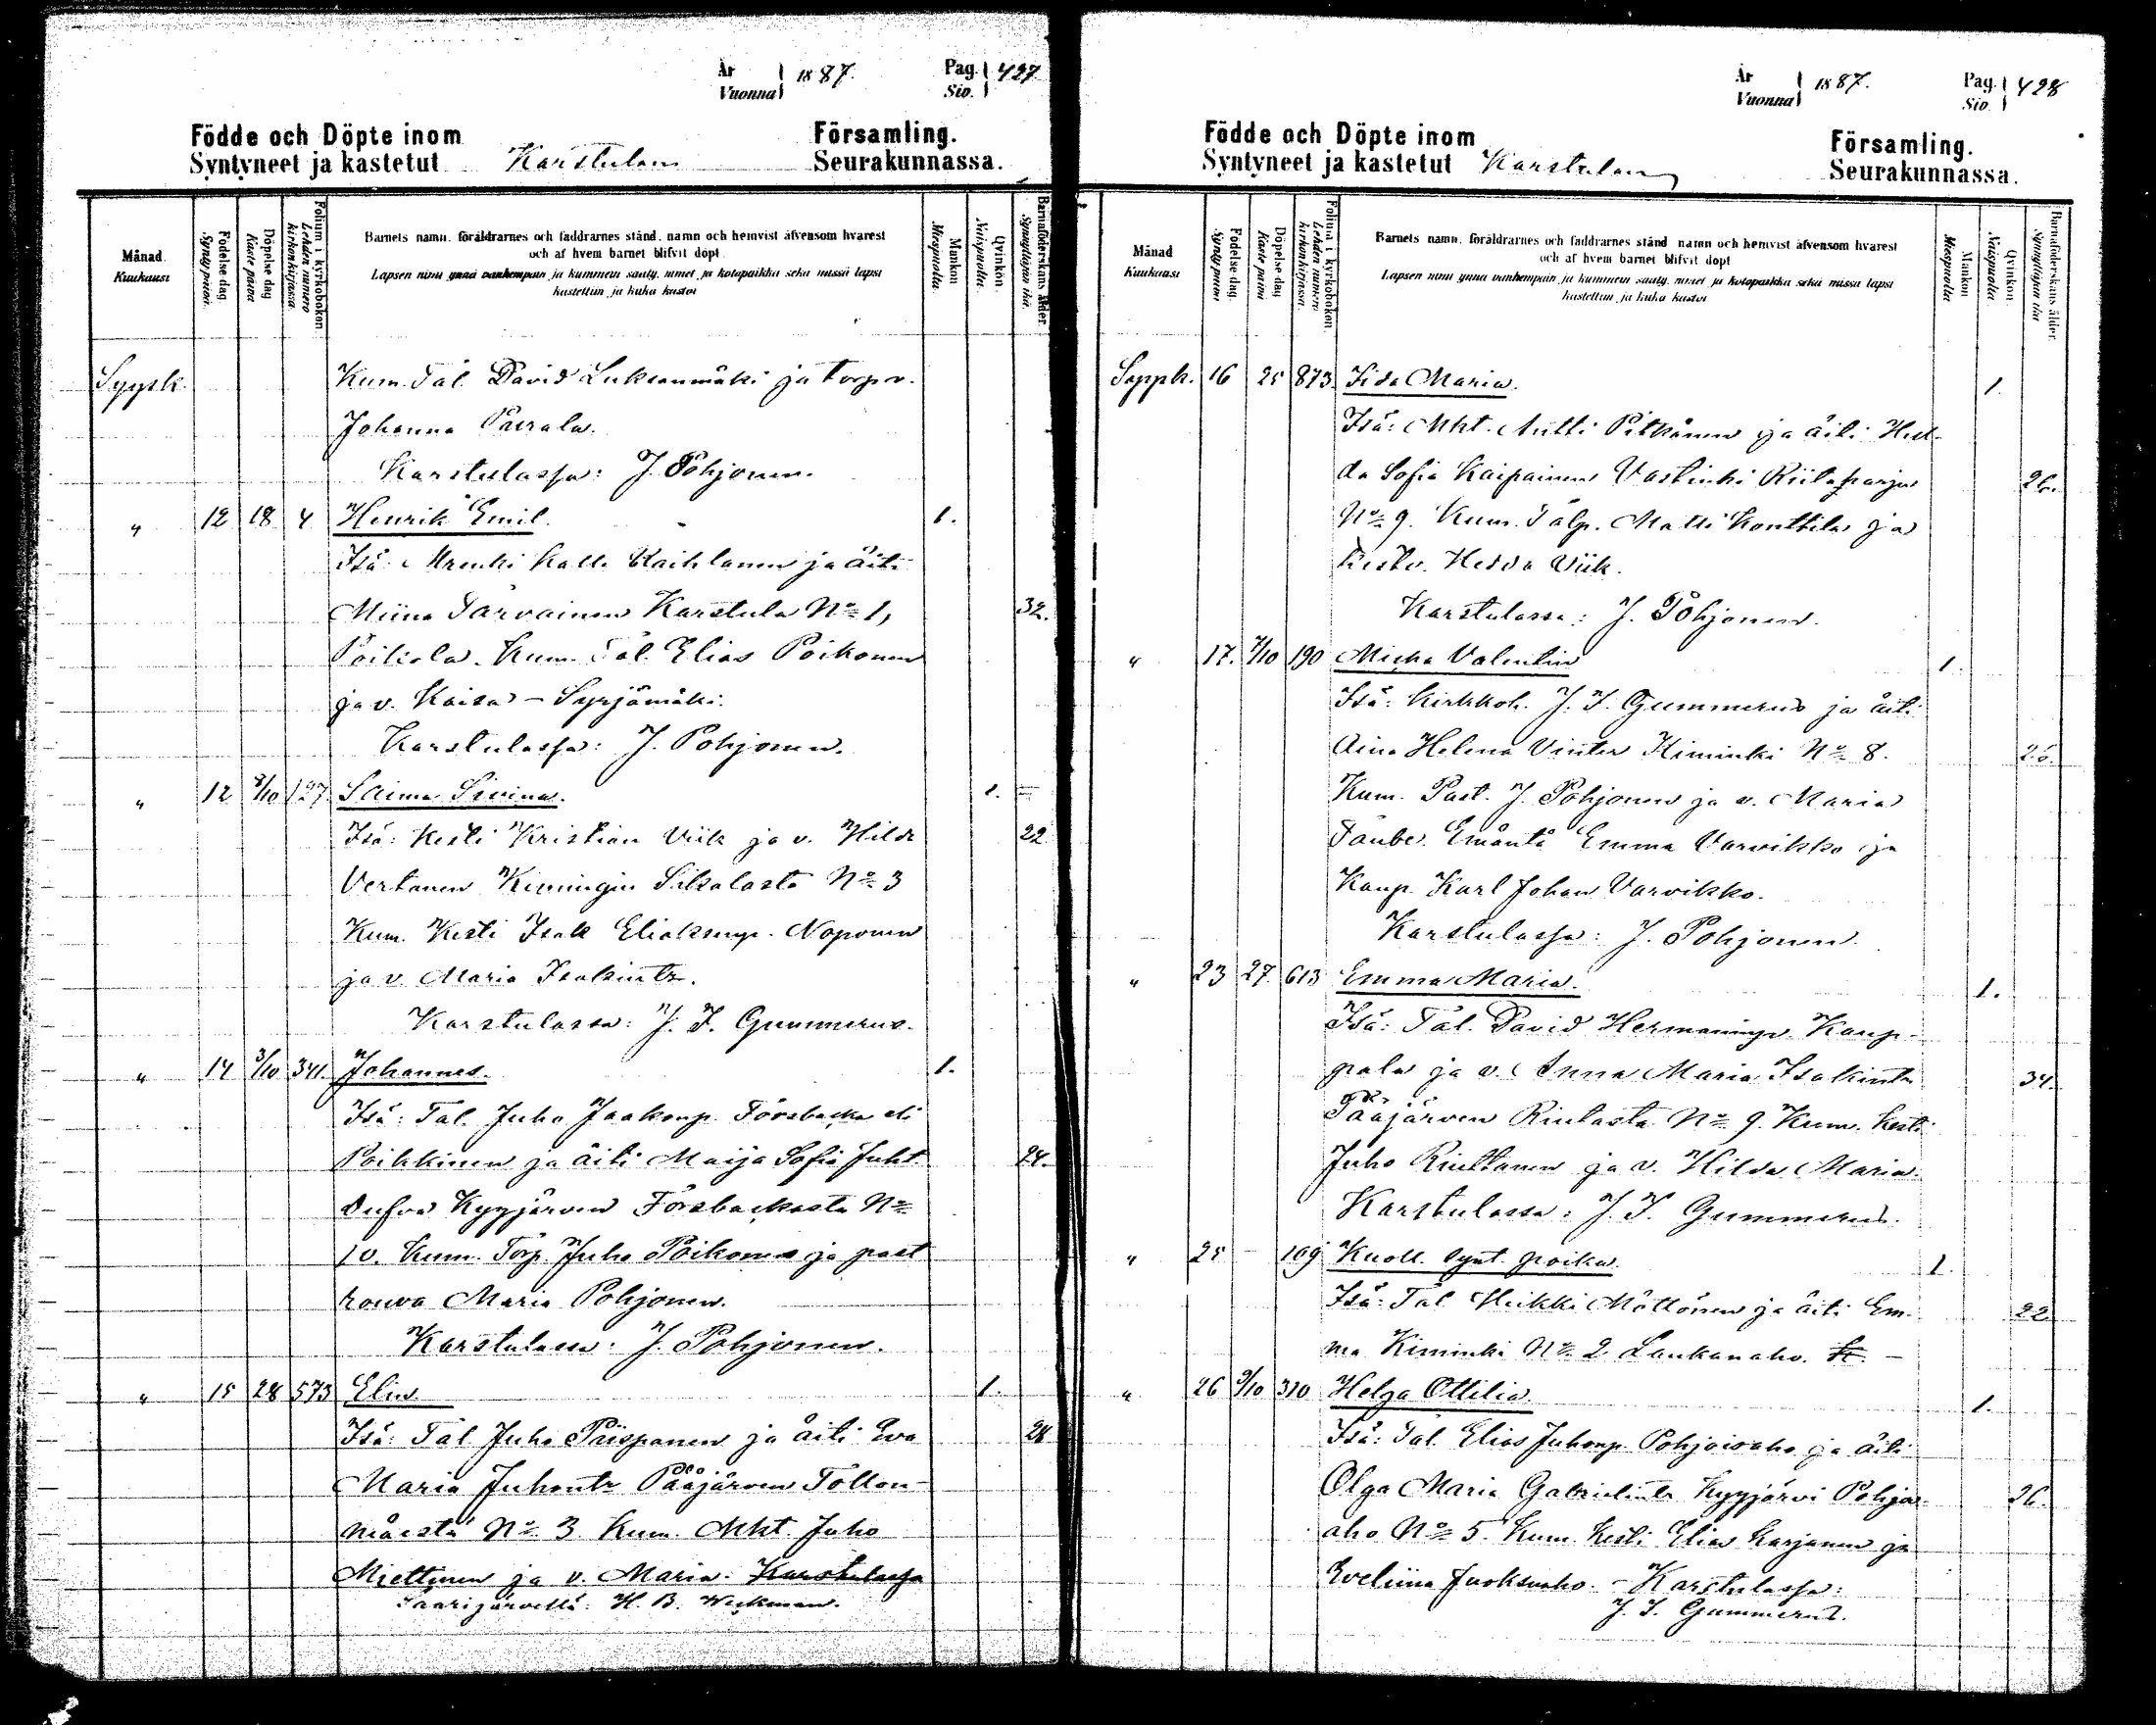 År 1887. Pag. 427
Vuonna Siv.
Födde och Döpte inom Församling.
Syntyneet ja kastetut Karstulan Seurakunnassa.
Månad Kuukausi
Födelse dag Synty päivä.
Döpelse dag Kaste päivä
Folium i kyrkoboken. Lehden numero kirkonkirjassa.
Barnets namn, föräldrarnes och faddrarnes stånd, namn och hemvist äfvensom hvarest
och af hvem barnet blifvit döpt
Lapsen nimi ynnä vanhempain ja kummein sääty, nimet ja kotopaikka sekä missä lapsi
kastettiin ja kuka kastoi
Mankön Miespuolta
Qvinkön Naispuolta.
Barnaföderskans ålder. Synnyttäjän ikä.
Syysk. Kum. Tal. David Luksanmäki ja torp. v.
Johanna Päirala.
Karstulassa: J. Pohjonen.
" 12 18 4 Henrik Emil. 1.
Isä: Kalle Raihlanen ja äiti
Miina Tarvainen Karstula No 1, 32.
Poikola. Kum. Tal. Elias Poikonen
ja v. Kaisa - Syrjämäki.
Karstulassa: J. Pohjonen.
" 12 2/10 127 Saima Sivina. 1.
Isä: Kesti Kristian Viik ja v. Hilda 22
Vertanen Kimingin Sikalasta No 3
Kum. Kesti Isak Eliaksenp. Noponen
ja v. Maria Isakintr.
Karstulassa: J. I. Gummerus.
" 14 3/10 341. Johannes. 1.
Isä: Tal. Juho Jaakonp. Forsbacka eli
Poikkinen ja äiti Maija Sofia Juht. 24.
Dufva Kyyjärven Forsbackasta No
10. Kum. Torp. Juho Poikonen ja past.
rouva Maria Pohjonen.
Karstulassa: J. Pohjonen.
" 15 28 573 Elin. 1.
Isä: Tal. Juho Piispanen ja äiti Eva 28
Maria Juhontr. Pääjärven Tollon-
mäestä No 3 Kum. Mkt. Juho
Miettinen ja v. Maria. Karstulassa
Saarijärvellä: H. B. Weckman.
År 1887. Pag. 428
Vuonna Siv.
Födde och Döpte inom Församling.
Syntyneet ja kastetut Karstulan Seurakunnassa.
Månad Kuukausi
Födelse dag. Synty päivä
Döpelse dag Kaste päivä
Folium i kyrkoboken. Lehden numero kirkonkirjassa.
Barnets namn, föräldrarnes och faddrarnes stånd namn och hemvist äfvensom hvarest
och af hvem barnet blifvit döpt
Lapsen nimi ynnä vanhempain ja kummein sääty, nimet ja kotopaikka sekä missä lapsi
kastettiin ja kuka kastoi
Mankön Miespuolta
Qvinkön Naispuolta
Barnaföderskans ålder. Synnyttäjän ikä
Syysk. 16 25 873. Iida Maria. 1.
Isä: Mkt. Antti Pitkänen ja äiti Hed-
da Sofia Kaipainen Vastinki Riilaharju 26.
No 9. Kum. Talp. Matti Konttila ja
Kestv. Hedda Viik.
Karstulassa: J. Pohjonen.
" 17. 7/10 190 Micha Valentin 1.
Isä: Kirkkoh. J. I. Gummerus ja äiti
Aina Helena Vinter Kiminki No 8. 26.
Kum. Past. J. Pohjonen ja v. Maria
Taube. Emäntä Emma Varvikko ja
Kaup. Karl Johan Varvikko.
Karstulassa: J. Pohjonen.
" 23 27. 613 Emma Maria. 1.
Isä: Tal. David Hermaninp. Kaup-
pala ja v. Anna Maria Isakintr. 34.
Pääjärven Riulasta No 9. Kum. Kesti
Juho Riuttanen ja v. Hilda Maria.
Karstulassa: J. I. Gummerus.
" 25 - 109 Kuoll. synt. poika. 1
Isä: Tal. Heikki Möttönen ja äiti Em- 22
ma Kiminki No 2 Laukanaho. -
" 26 9/10 310 Helga Ottilia. 1.
Isä: Tal. Elias Juhonp. Pohjoisaho ja äiti
Olga Maria Gabrielintr. Kyyjärvi Pohjois- 26.
aho No 5. Kum. Kesti Elias Karjanen ja
Eveliina Juoksuaho. - Karstulassa:
J. I. Gummerus.